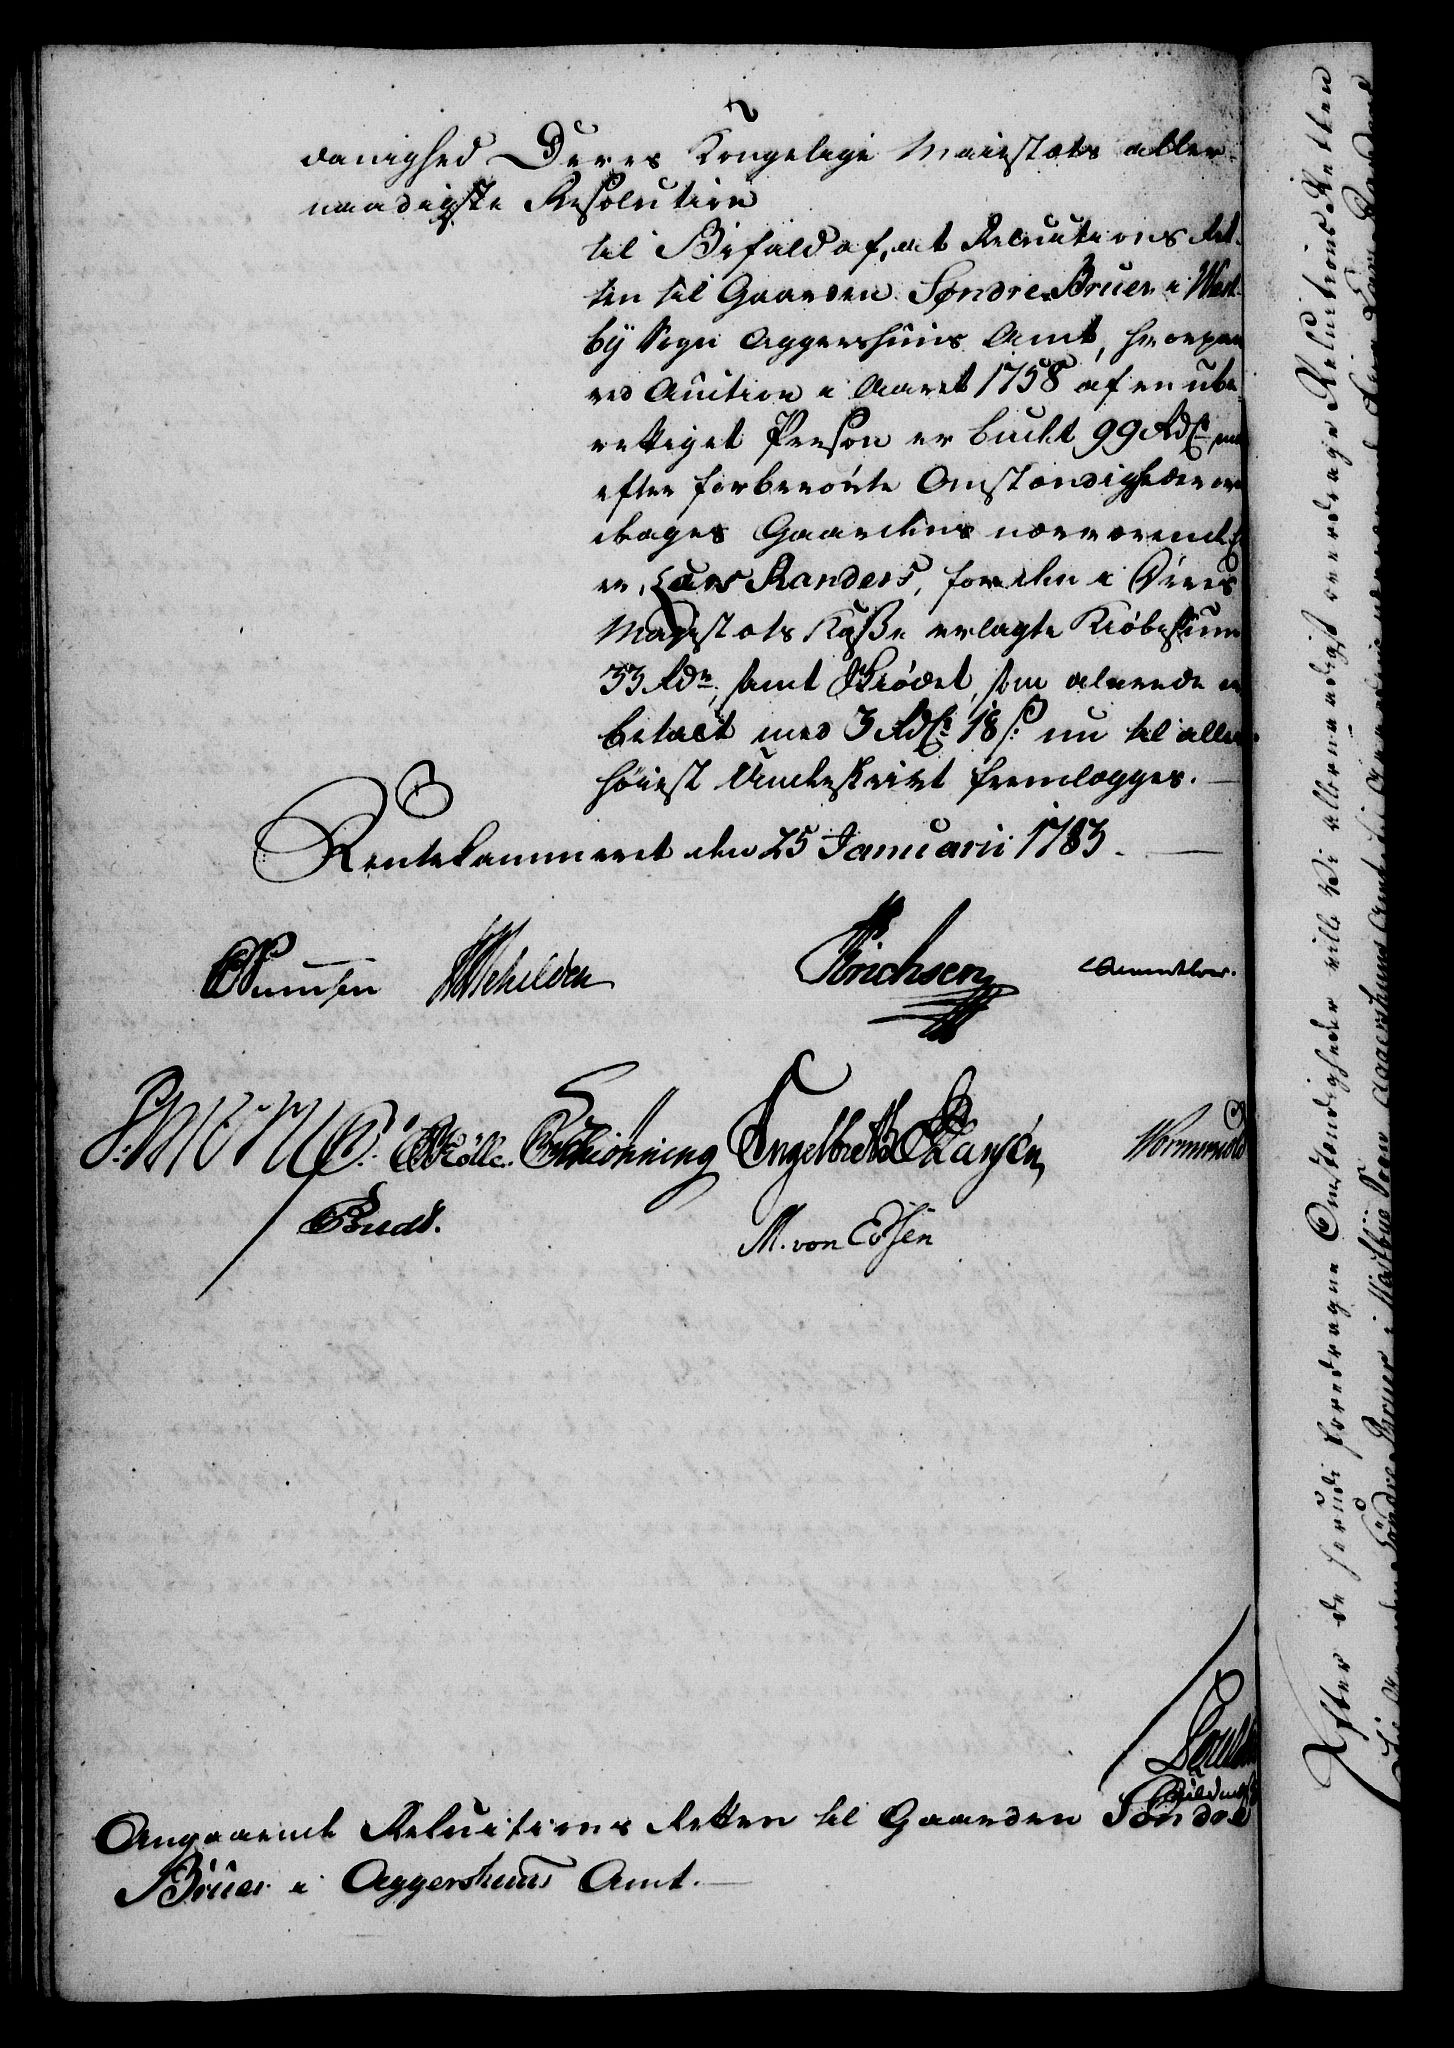 danighed Deres Kongelige Maiestæts aller-
naadigste Resolution
til Bifald af, at Reluitions Ret-
ten til Gaarden Søndre Bruer i West-
bÿ Sogn Aggershuus Amt, hvorpaa
ved Auction i Aaret 1758 af en ube-
rettiget Person er budt 99 Rdr maa
efter forberørte Omstændigheder over-
drages Gaardens nærværende
er, Lars Randers, for den i Deres
Majestæts Kasse erlagte Kiøbesum
33 Rdr, samt Skiødet, som alerede er
betalt med 3 Rdr 18 s: nu til aller-
høiest Underskrivt fremlægges.
Rentekammeret den 25 Januarii 1783.
Schilden Erichsen
Mölle. Schiönning Engelbreth Hansen Wormwold
M. von Essen
Angaaende Reluitions Retten til Gaarden Søndre
Bruer i Aggershuus Amt.
Efter de herudi foredragne Omstændigheder ville Vi allernaadigst overdrage Reluitions Retten
til Gaarden Söndre Bruer i Westbye Sogn Aggershuus Amt